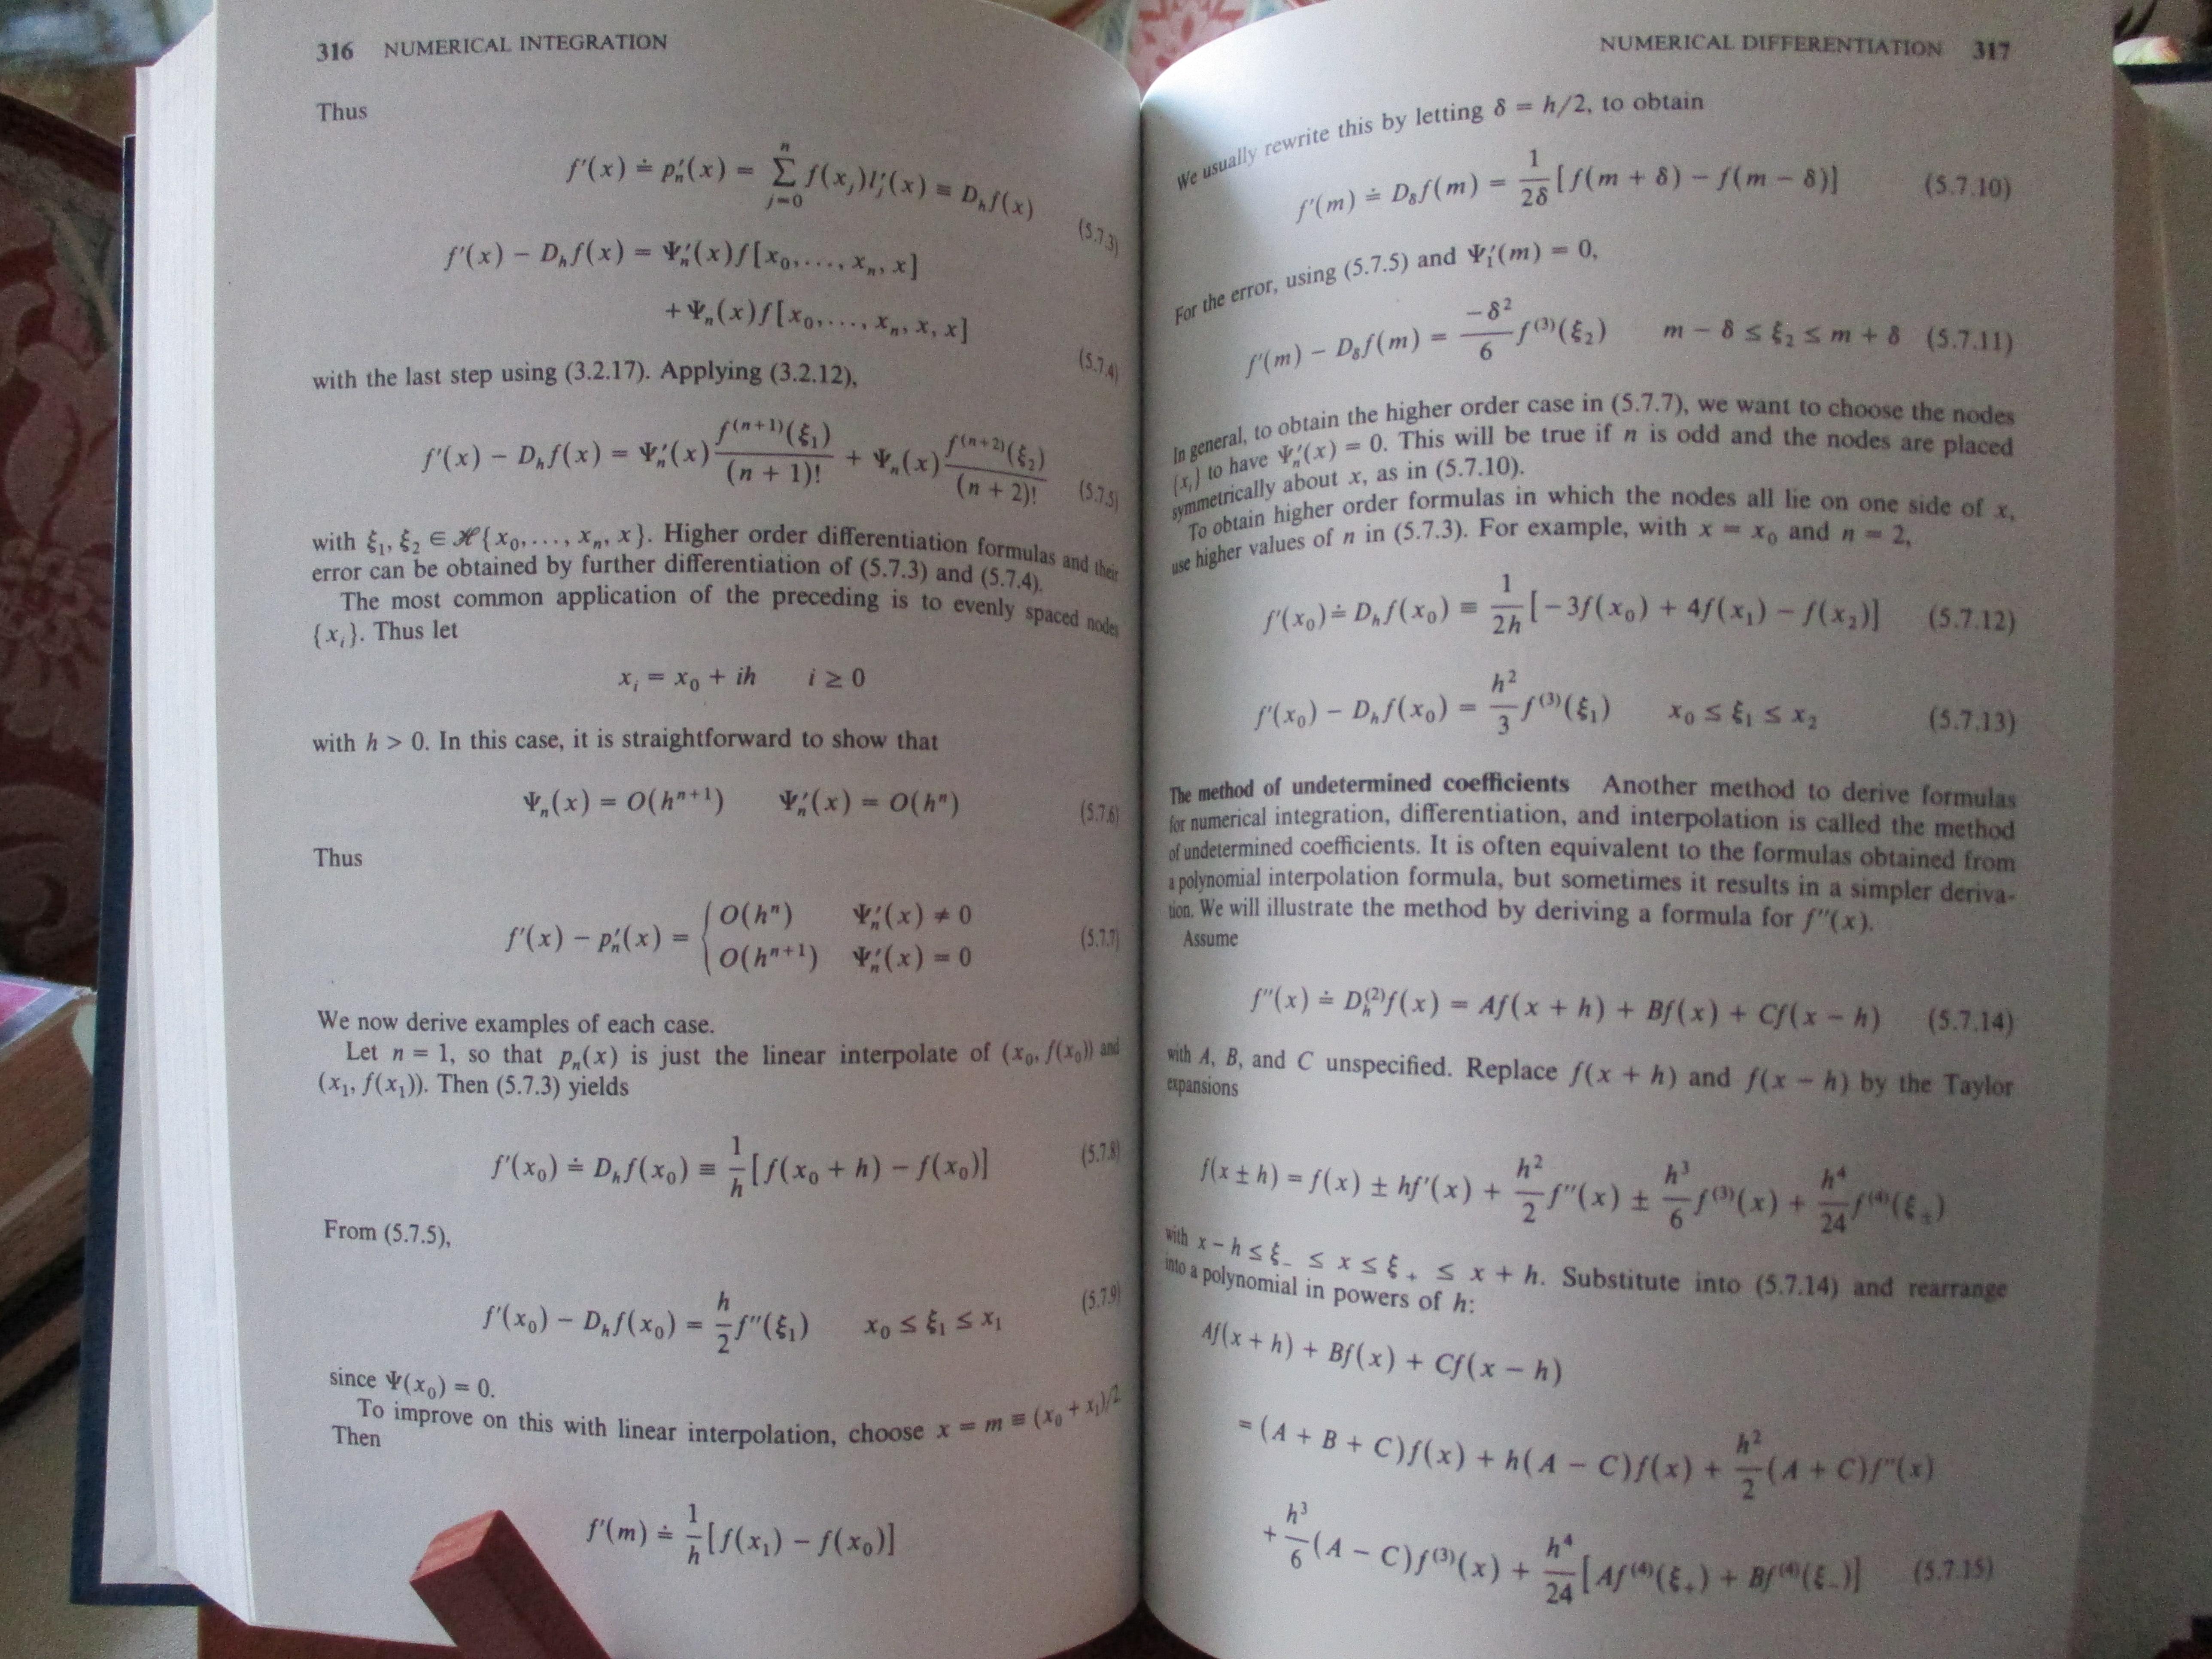 316 NUMERICAL INTEGRATION
Thus
f′(x) ≐ p′ₙ(x) = ∑_{j=0}^{n} f(x_j)l′_j(x) ≡ D_h f(x)
(5.7.3)
f′(x) − D_h f(x) = Ψ′ₙ(x)f[x₀,..., xₙ, x]
+Ψₙ(x)f[x₀,..., xₙ, x, x]
(5.7.4)
with the last step using (3.2.17). Applying (3.2.12),
f′(x) − D_h f(x) = Ψ′ₙ(x) f^{(n+1)}(ξ₁)/(n + 1)! + Ψₙ(x) f^{(n+2)}(ξ₂)/(n + 2)! (5.7.5)
with ξ₁, ξ₂ ∈ ℋ{x₀,..., xₙ, x}. Higher order differentiation formulas and their
error can be obtained by further differentiation of (5.7.3) and (5.7.4).
The most common application of the preceding is to evenly spaced nodes
{x_i}. Thus let
x_i = x₀ + ih i ≥ 0
with h > 0. In this case, it is straightforward to show that
Ψₙ(x) = O(h^{n+1}) Ψ′ₙ(x) = O(hⁿ) (5.7.6)
Thus
f′(x) − p′ₙ(x) = { O(hⁿ) Ψ′ₙ(x) ≠ 0
O(h^{n+1}) Ψ′ₙ(x) = 0 (5.7.7)
We now derive examples of each case.
Let n = 1, so that pₙ(x) is just the linear interpolate of (x₀, f(x₀)) and
(x₁, f(x₁)). Then (5.7.3) yields
f′(x₀) ≐ D_h f(x₀) ≡ 1/h [f(x₀ + h) − f(x₀)] (5.7.8)
From (5.7.5),
f′(x₀) − D_h f(x₀) = h/2 f″(ξ₁) x₀ ≤ ξ₁ ≤ x₁ (5.7.9)
since Ψ(x₀) = 0.
To improve on this with linear interpolation, choose x = m ≡ (x₀ + x₁)/2.
Then
f′(m) ≐ 1/h [f(x₁) − f(x₀)]
NUMERICAL DIFFERENTIATION 317
We usually rewrite this by letting δ = h/2, to obtain
f′(m) ≐ D_δ f(m) = 1/2δ [f(m + δ) − f(m − δ)] (5.7.10)
For the error, using (5.7.5) and Ψ′₁(m) = 0,
f′(m) − D_δ f(m) = −δ²/6 f^{(3)}(ξ₂) m − δ ≤ ξ₂ ≤ m + δ (5.7.11)
In general, to obtain the higher order case in (5.7.7), we want to choose the nodes
{x_i} to have Ψ′ₙ(x) = 0. This will be true if n is odd and the nodes are placed
symmetrically about x, as in (5.7.10).
To obtain higher order formulas in which the nodes all lie on one side of x,
use higher values of n in (5.7.3). For example, with x = x₀ and n = 2,
f′(x₀) ≐ D_h f(x₀) ≡ 1/2h [−3f(x₀) + 4f(x₁) − f(x₂)] (5.7.12)
f′(x₀) − D_h f(x₀) = h²/3 f^{(3)}(ξ₁) x₀ ≤ ξ₁ ≤ x₂ (5.7.13)
The method of undetermined coefficients Another method to derive formulas
for numerical integration, differentiation, and interpolation is called the method
of undetermined coefficients. It is often equivalent to the formulas obtained from
a polynomial interpolation formula, but sometimes it results in a simpler deriva-
tion. We will illustrate the method by deriving a formula for f″(x).
Assume
f″(x) ≐ D_h^{(2)}f(x) = Af(x + h) + Bf(x) + Cf(x − h) (5.7.14)
with A, B, and C unspecified. Replace f(x + h) and f(x − h) by the Taylor
expansions
f(x ± h) = f(x) ± hf′(x) + h²/2 f″(x) ± h³/6 f^{(3)}(x) + h⁴/24 f^{(4)}(ξ_±)
with x − h ≤ ξ₋ ≤ x ≤ ξ₊ ≤ x + h. Substitute into (5.7.14) and rearrange
into a polynomial in powers of h:
Af(x + h) + Bf(x) + Cf(x − h)
= (A + B + C)f(x) + h(A − C)f(x) + h²/2 (A + C)f″(x)
+ h³/6 (A − C)f^{(3)}(x) + h⁴/24 [Af^{(4)}(ξ₊) + Bf^{(4)}(ξ₋)] (5.7.15)